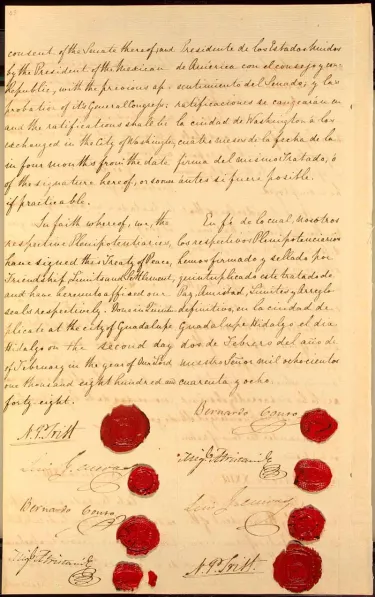 consent of the Senate thereof; and
by the President of the Mexican
Republic, with the previous ap-
probation of its General Congress;
and the ratifications shall be
exchanged in the City of Washington,
in four months from the date
of the signature hereof, or sooner
if practicable.
In faith whereof, we, the
respective Plenipotentiaries,
have signed this Treaty of Peace,
Friendship, Limits and Settlement,
and have hereunto affixed our
seals respectively. Done in Quintu-
plicate at the city of Guadalupe
Hidalgo on the second day
of February in the year of Our Lord
one thousand eight hundred and
forty eight.
N. P. Trist
Luis G. Cuevas
Bernardo Couto
Migl. Atristain
Presidente de los Estados Unidos
de America con el consejo y con-
sentimiento del Senado; y las
ratificaciones se cangearán en
la ciudad de Washington á los
cuatro meses de la fecha de la
firma del mismo Tratado, ó
antes si fuere posible.
En fé de lo cual, nosotros
los respectivos Plenipotenciarios
hemos firmado y sellado por
quintuplicado este tratado de
Paz, Amistad, Límites y Arreglo
definitivo, en la ciudad de
Guadalupe Hidalgo el dia
dos de Febrero del año de
nuestro Señor mil ochocientos
cuarenta y ocho.
Bernardo Couto
Migl. Atristain
Luis G. Cuevas
N. P. Trist